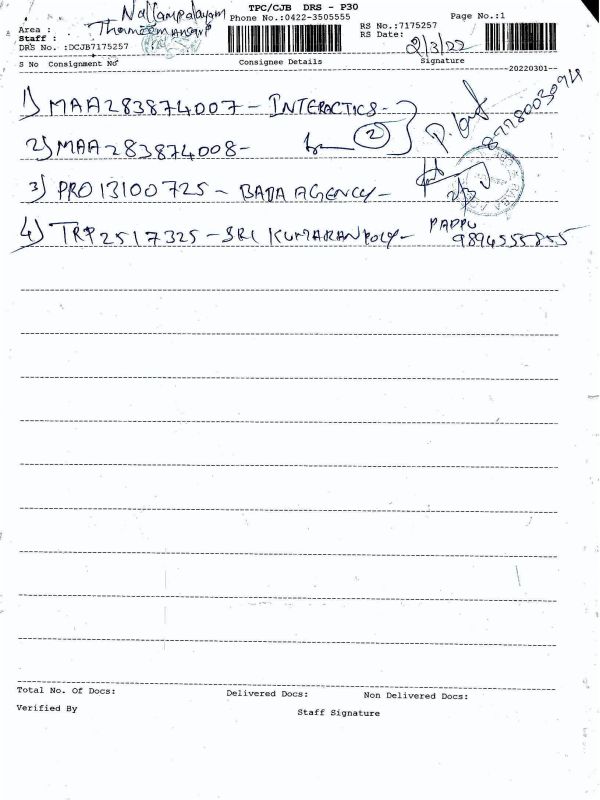 TPC/CJB DRS - P30
Nallampalayam
Phone No.:0422-3505555
Page No.:1
Area :
RS No.:7175257
Staff :
RS Date:
2/3/22
DRS No. :DCJB7175257
S No Consignment No
Consignee Details
Signature
--20220301--
1) MAA283874007 - INTERACTICS -
2) MAA283874008 -
2
8778003094
3) PRO13100725 - BABA AGENCY -
2/3
4) TRP2517325 - SRI KUMARAN POLY -
PAPPU
9894555855
Total No. Of Docs:
Delivered Docs:
Non Delivered Docs:
Verified By
Staff Signature